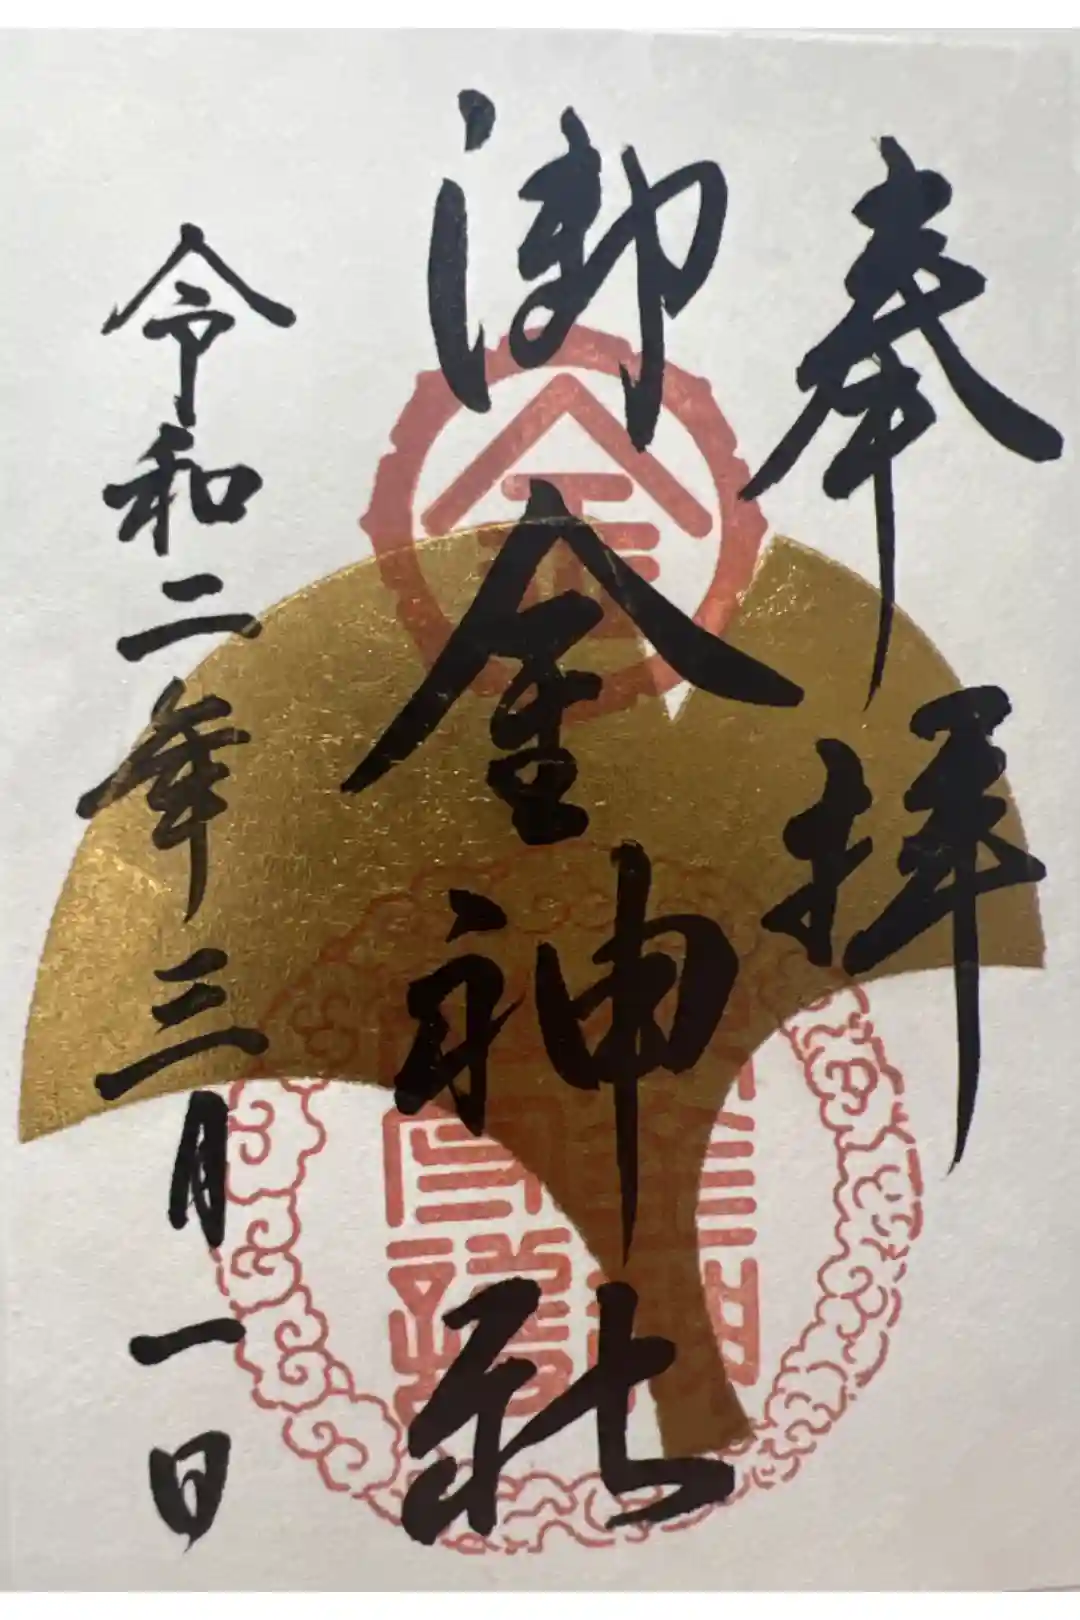 奉拝
御金神社
金
令和二年三月一日